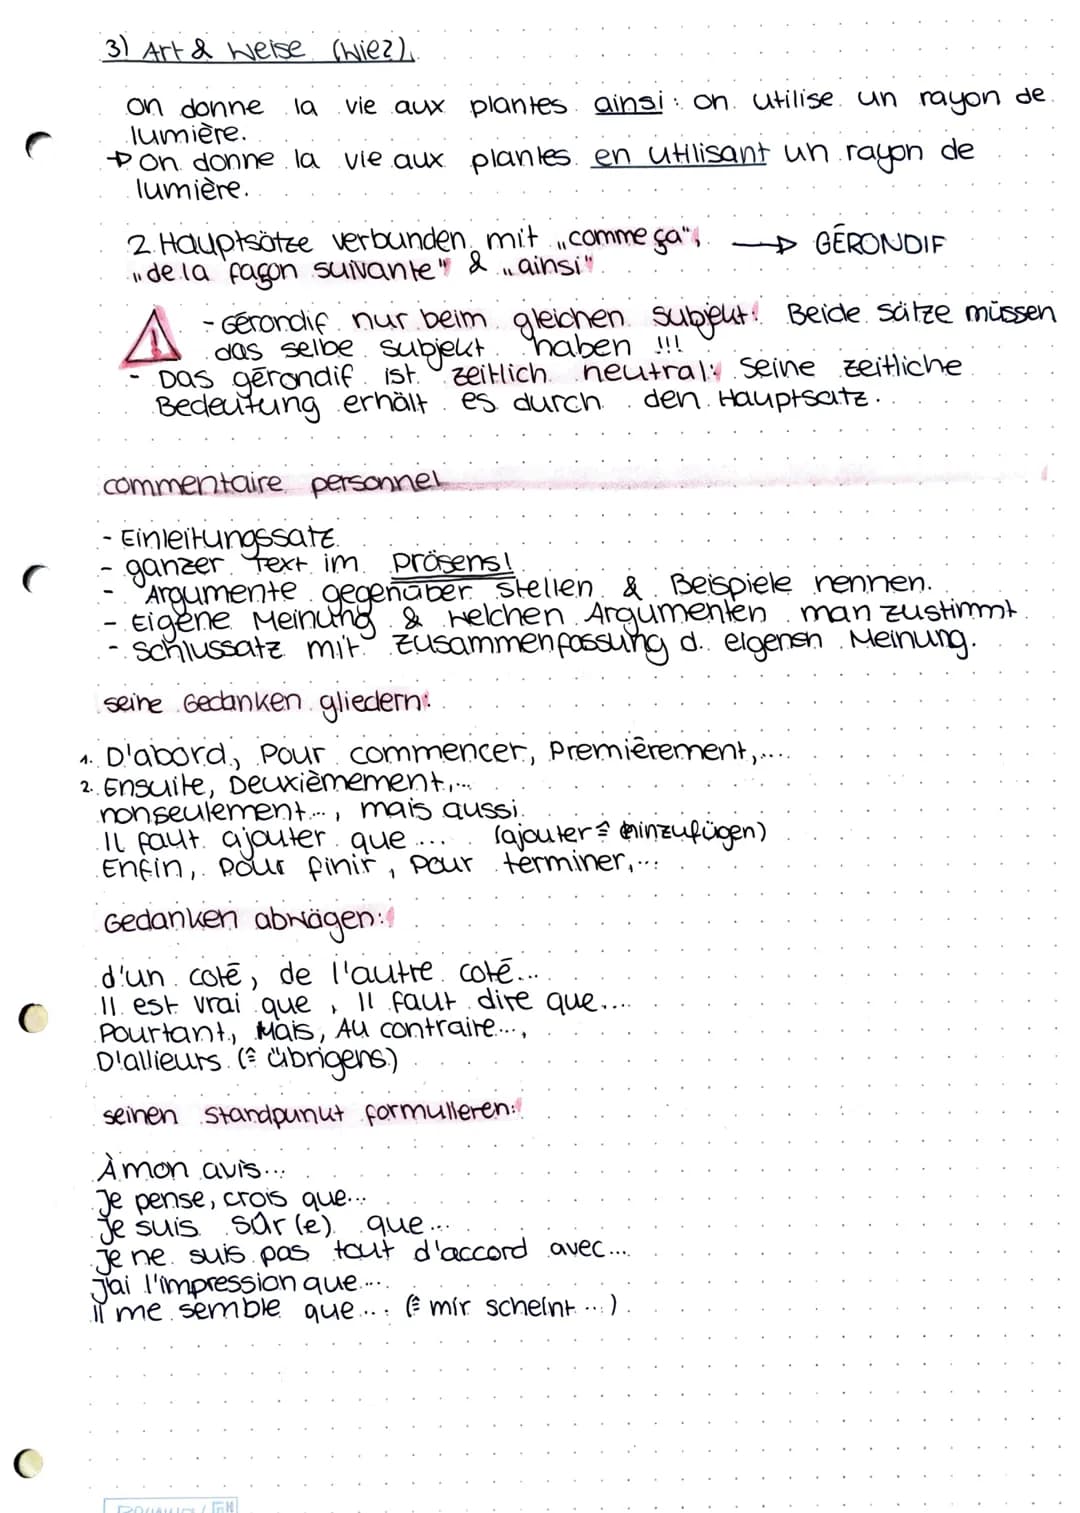 3) Art & Weise (Wie?)
on donne la vie aux plantes ainsi: on utilise un rayon de
lumière.
→ on donne la vie aux plantes en utilisant un rayon de
lumière.
2 Hauptsätze verbunden mit „comme ça",
„de la façon suivante" & „ainsi"
→ GÉRONDIF
- Gérondif nur beim gleichen Subjekt! Beide Sätze müssen
das selbe Subjekt haben !!!
- Das gérondif ist zeitlich neutral: seine zeitliche
Bedeutung erhält es durch den Hauptsatz.
commentaire personnel
- Einleitungssatz
- ganzer Text im Präsens!
- Argumente gegenüber stellen & Beispiele nennen.
- Eigene Meinung & welchen Argumenten man zustimmt
- Schlussatz mit Zusammenfassung d. eigenen Meinung.
seine Gedanken gliedern:
1. D'abord, Pour commencer, Premièrement,....
2. Ensuite, Deuxièmement,...
nonseulement..., mais aussi
Il faut ajouter que .... (ajouter ≙ hinzufügen)
Enfin, pour finir, pour terminer,...
Gedanken abwägen:
d'un coté, de l'autre coté...
Il est vrai que, Il faut dire que....
Pourtant, Mais, Au contraire...,
D'allieurs (≙ übrigens)
seinen Standpunkt formulieren:
À mon avis...
Je pense, crois que...
Je suis sûr(e) que...
Je ne suis pas tout d'accord avec...
J'ai l'impression que...
Il me semble que... (≙ mir scheint ...)